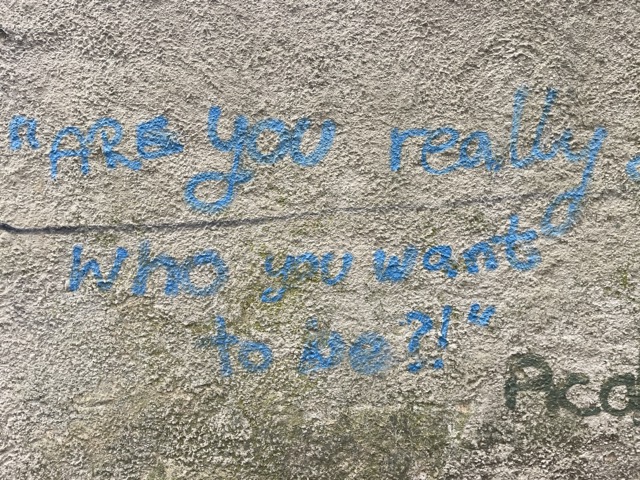 "ARE you really
who you want
to be?!"